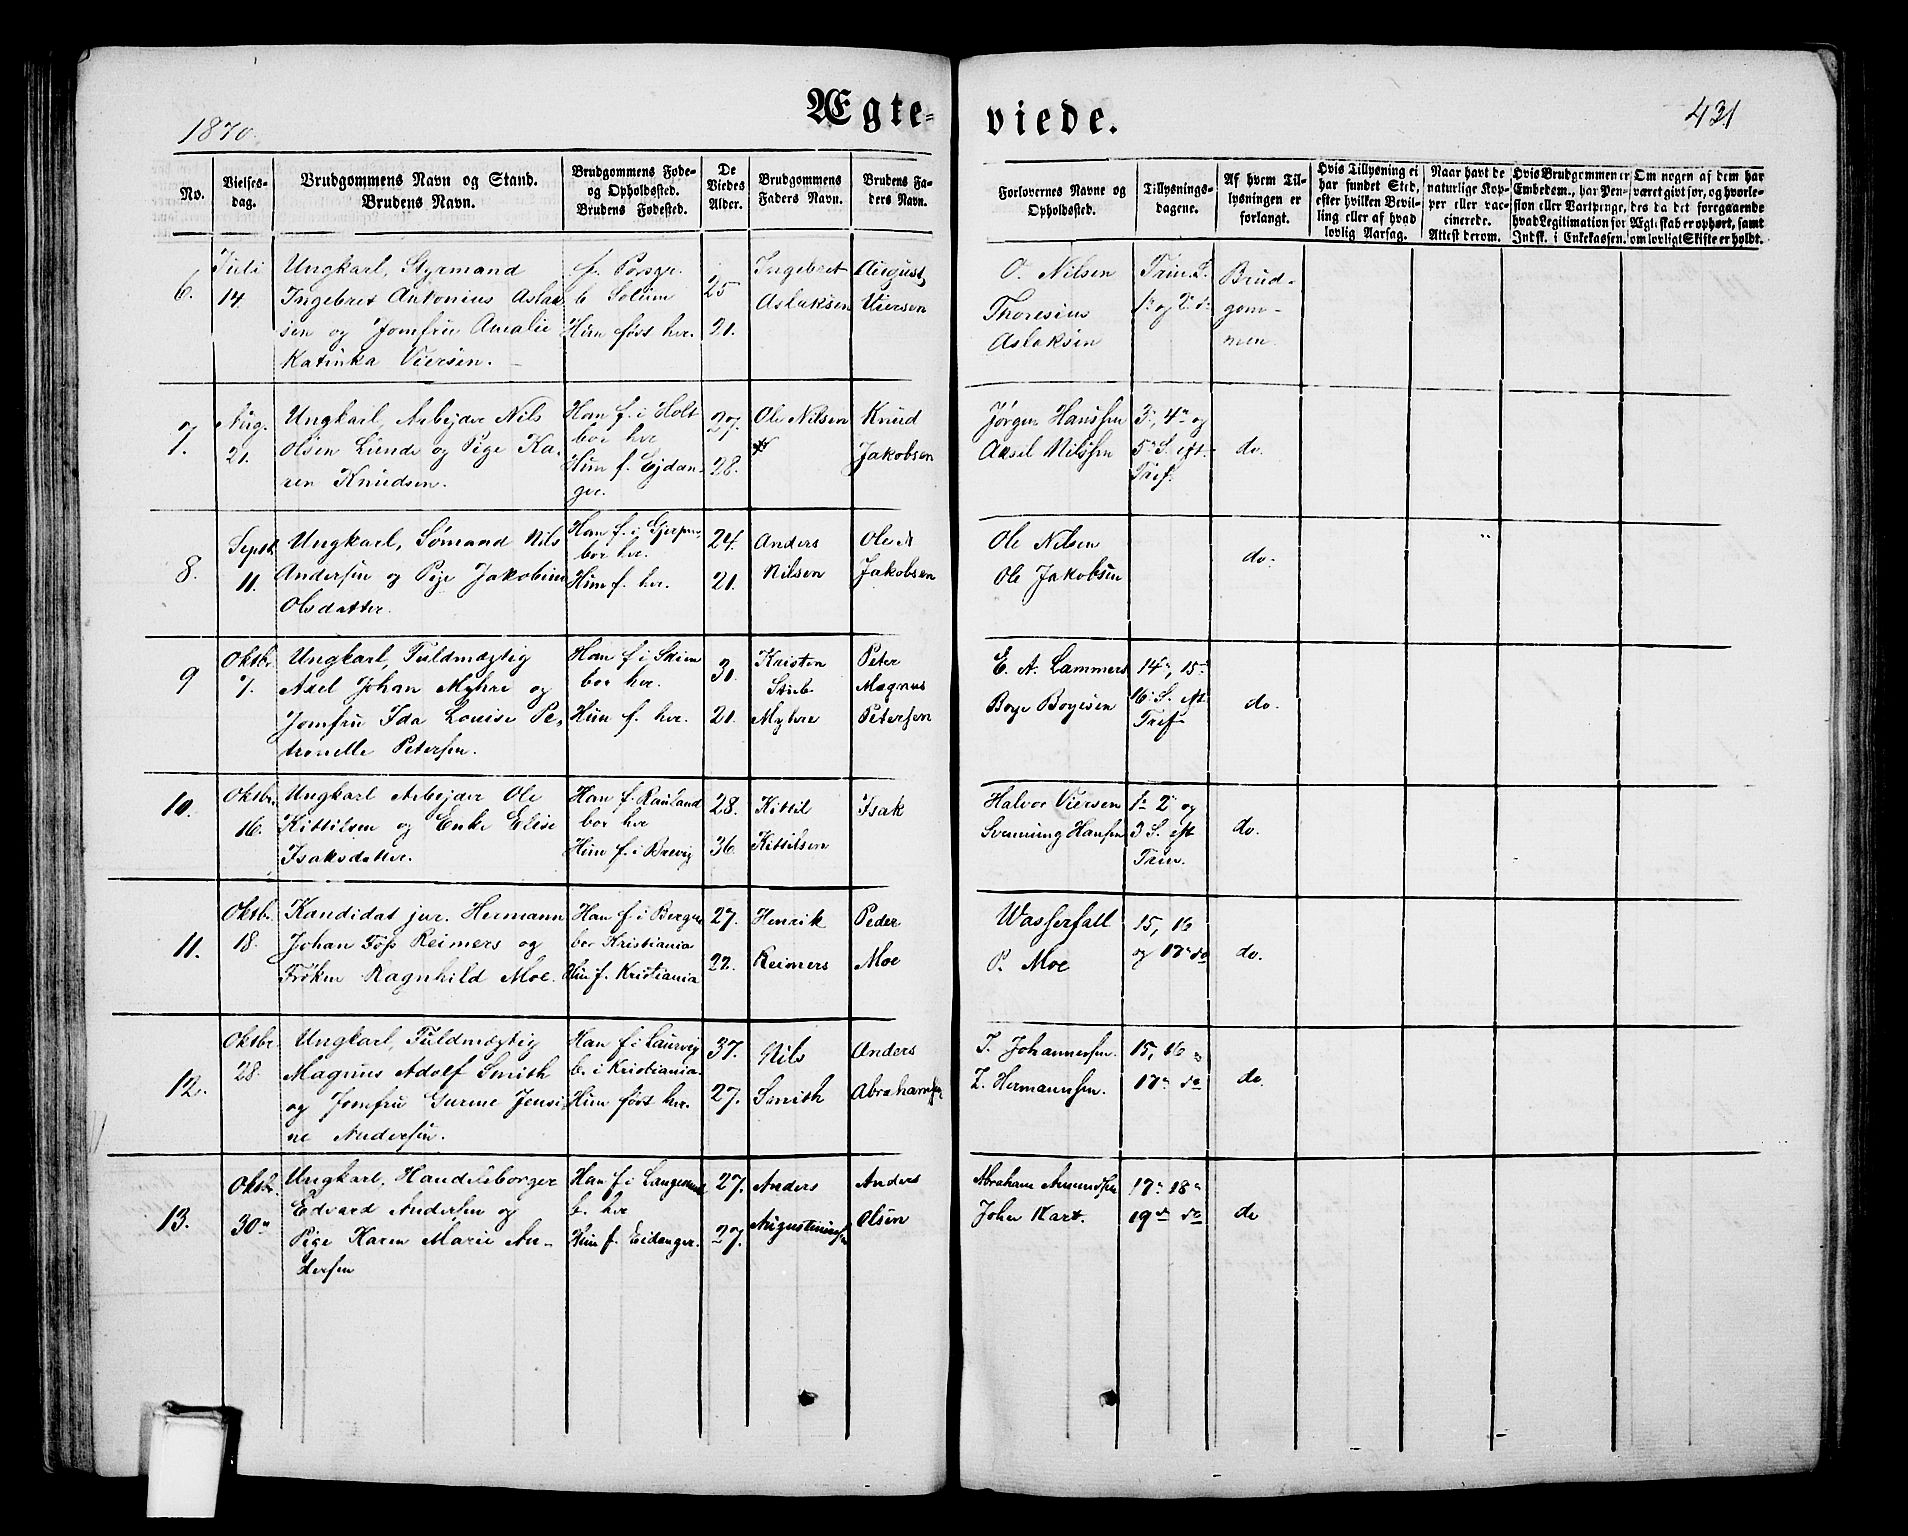 1870.
Ægteviede.
431
No.
Vielsesdag.
Brudgommens Navn og Stand.
Brudens Navn.
Brudgommens Føde-
og Opholdssted.
Brudens Fødested.
De
Viedes
Alder.
Brudgommens
Faders Navn.
Brudens Fa-
ders Navn.
Forlovernes Navne og
Opholdssted.
Tillysnings-
dagene.
Af hvem Til-
lysningen er
forlangt.
Hvis Tillysning ei
har fundet Sted,
efter hvilken Bevil-
ling eller af hvad
lovlig Aarsag.
Naar havt de
naturlige Kop-
per eller vac-
cinerede.
Attest derom.
Hvis Brudgommen er
Embedsm., har Pen-
sion eller Vartpenge,
hvad Legitimation for
Indsk. i Enkekassen.
Om nogen af dem har
været gift før, og hvorle-
des da det foregaaende
Ægteskab er ophørt, samt
om lovligt Skifte er holdt.
6.
Juli
14
Ungkarl, Styrmand
Ingebret Antonius Aslak
sen og Jomfru Amalie
Katinka Viersen.
f. Porsgr.
b Solum
Hun født her.
25
21.
Ingebret
Aslaksen
August
Viersen
O. Nilsen
Thoresius
Aslaksen
Trin. S.
1ˢ og 2ˢ s.
Brud-
gom-
men.
7.
Aug.
21.
Ungkarl, Arbejder Nils
Olsen Lunde og Pige Ka-
ren Knudsen.
Han f. i Holt
bor her
Hun f. Ejdan-
ger.
27.
28.
Ole Nilsen
Knud
Jakobsen
Jørgen Hanssen
Aksel Nilssen
3ˢ, 4ˢ og
5ˢ S. eft.
Tref.
do.
8.
Septb.
11.
Ungkarl, Sømand Nils
Andersen og Pige Jakobine
Olsdatter.
Han f. i Gjerpen
bor her.
Hun f. her.
24.
21.
Anders
Nilsen
Ole N
Jakobsen
Ole Nilsen
Ole Jakobsen
do.
9
Oktbr.
7.
Ungkarl, Fuldmægtig
Axel Johan Myhre og
Jomfru Ida Louise Pe-
tronelle Petersen.
Han f. i Skien
bor her.
Hun f. her.
30.
21.
Kristen
Stub
Myhre
Peter
Magnus
Petersen
E. A. Lammers
Boye Boyesen
14ˢ, 15ˢ
16 S. eft.
Tref.
do.
10.
Oktbr.
16.
Ungkarl Arbejder Ole
Kittilsen og Enke Elise
Isaksdatter.
Han f. Rauland
bor her
Hun f. i Brevig
28.
36.
Kittil
Kittilsen
Isak
Halvor Viersen
Svenning Hansen
1ˢ 2ˢ og
3 S. eft
Trin.
do.
11.
Oktbr.
18.
Kandidat jur. Hermann
Johan Foss Reimers og
Frøken Ragnhild Moe.
Han f. i Bergen
bor Kristiania
Hun f. Kristiania
27.
22.
Henrik
Reimers
Peder
Moe
Wasserfall
P. Moe
15, 16
og 17ˢ do
do.
12.
Oktbr.
28.
Ungkarl, Fuldmægtig
Magnus Adolf Smith
og Jomfru Gurine Jensi
ne Andersen.
Han f. i Laurvig
b. i Kristiania.
Hun født her.
37.
27.
Nils
Smith
Anders
Abrahamsen
T. Johannessen.
L. Hermannsen.
15, 16 og
17ˢ do
do.
13.
Oktbr.
30ˢ
Ungkarl, Handelsborger
Edvard Andersen og
Pige Karen Marie An-
dersen
Han f. i Langesund
b. her
Hun f. Eidanger.
27.
27.
Anders
Augustinussen
Anders
Olsen
Abraham Amundsen
Joher Kart.
17ˢ 18ˢ
19ˢ do
do